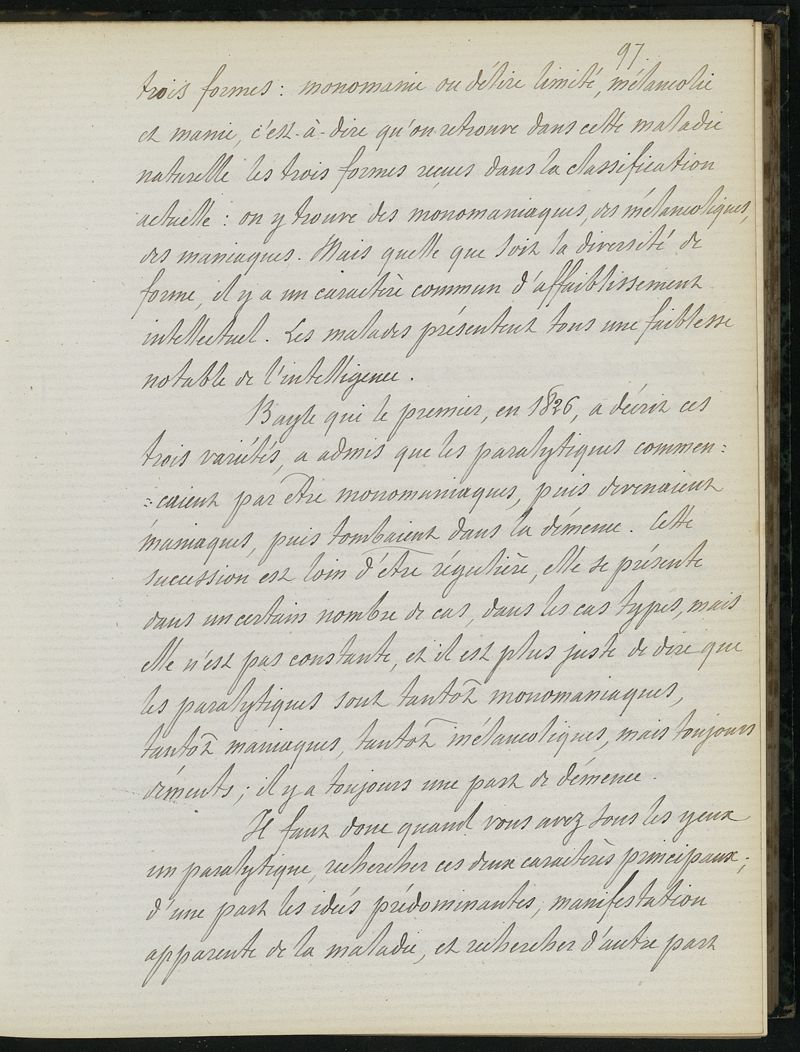 97.
trois formes : monomanie ou délire limité, mélancolie
et manie, c'est-à-dire qu'on retrouve dans cette maladie
naturelle les trois formes reçues dans la classification
actuelle : on y trouve des monomaniaques, des mélancoliques,
des maniaques. Mais quelle que soit la diversité de
forme, il y a un caractère commun d'affaiblissement
intellectuel. Les malades présentent tous une faiblesse
notable de l'intelligence.
Bayle qui le premier, en 1826, a décrit ces
trois variétés, a admis que les paralytiques commen:
:çaient par être monomaniaques, puis devenaient
maniaques, puis tombaient dans la démence. Cette
succession est loin d'être régulière, elle se présente
dans un certain nombre de cas, dans les cas types, mais
elle n'est pas constante, et il est plus juste de dire que
les paralytiques sont tantôt monomaniaques,
tantôt maniaques, tantôt mélancoliques, mais toujours
déments ; il y a toujours une part de démence.
Il faut donc quand vous avez sous les yeux
un paralytique, rechercher ces deux caractères principaux ;
d'une part les idées prédominantes, manifestation
apparente de la maladie, et rechercher d'autre part